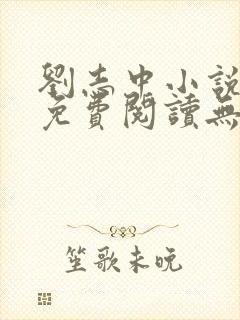 劉志中小說
免費閱讀無
笙歌未晚